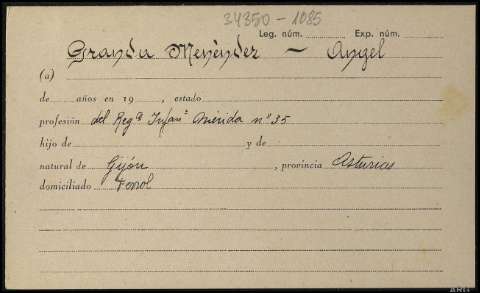 34350-1085
Leg. núm. Exp. núm.
Granda Menéndez - Angel
(a)
de años en 19 , estado
profesión del Regº Infanª Mérida nº 35
hijo de y de
natural de Gijón , provincia Asturias
domiciliado Ferrol